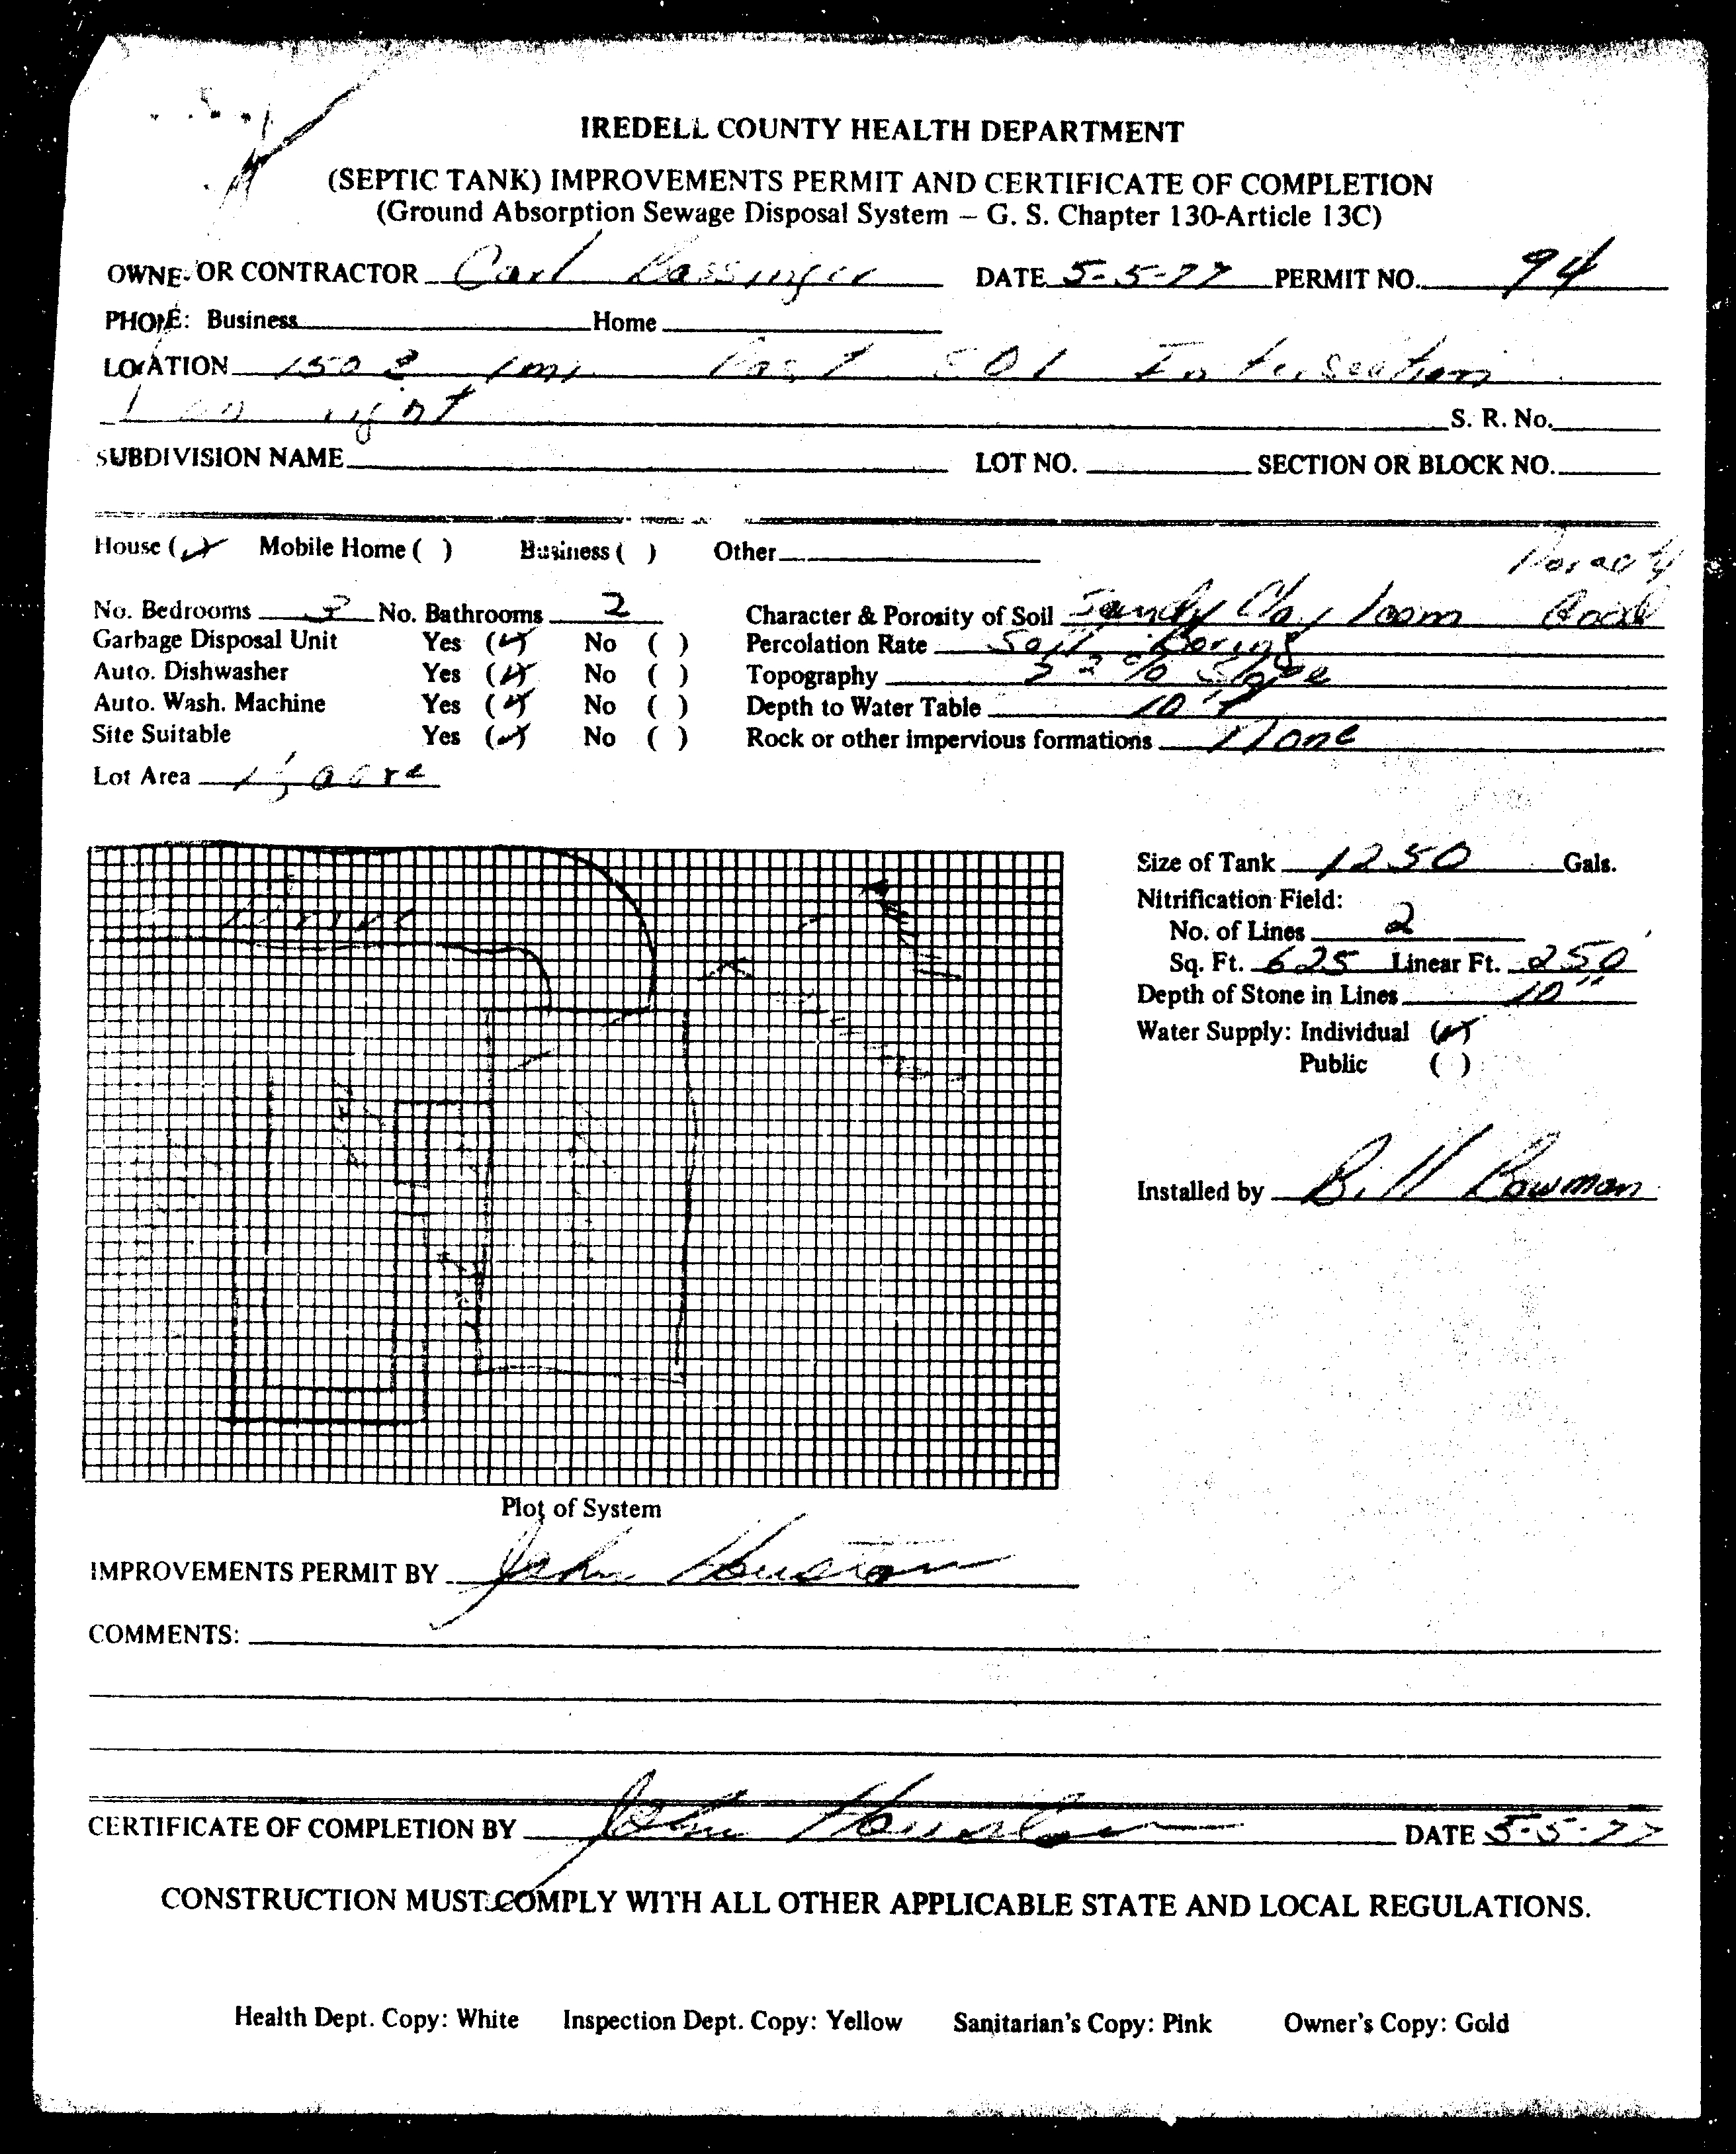 IREDELL COUNTY HEALTH DEPARTMENT
(SEPTIC TANK) IMPROVEMENTS PERMIT AND CERTIFICATE OF COMPLETION
(Ground Absorption Sewage Disposal System – G. S. Chapter 130-Article 13C)
OWNER OR CONTRACTOR Carl DATE 5-5-77 PERMIT NO. 94
PHONE: Business Home
LOCATION 150 1 mi Intersection
on right S. R. No.
SUBDIVISION NAME LOT NO. SECTION OR BLOCK NO.
House (✓) Mobile Home ( ) Business ( ) Other
No. Bedrooms 3 No. Bathrooms 2 Character & Porosity of Soil Sandy Clay loam Good
Garbage Disposal Unit Yes (✓) No ( ) Percolation Rate Soil Boring
Auto. Dishwasher Yes (✓) No ( ) Topography 2% Slope
Auto. Wash. Machine Yes (✓) No ( ) Depth to Water Table 10'+
Site Suitable Yes (✓) No ( ) Rock or other impervious formations None
Lot Area acre
Size of Tank 1250 Gals.
Nitrification Field:
No. of Lines 2
Sq. Ft. 625 Linear Ft. 250'
Depth of Stone in Lines 10"
Water Supply: Individual (✓)
Public ( )
Installed by Bill Bowman
Plot of System
IMPROVEMENTS PERMIT BY John Houston
COMMENTS:
CERTIFICATE OF COMPLETION BY John Houston DATE 5-5-77
CONSTRUCTION MUST COMPLY WITH ALL OTHER APPLICABLE STATE AND LOCAL REGULATIONS.
Health Dept. Copy: White Inspection Dept. Copy: Yellow Sanitarian's Copy: Pink Owner's Copy: Gold